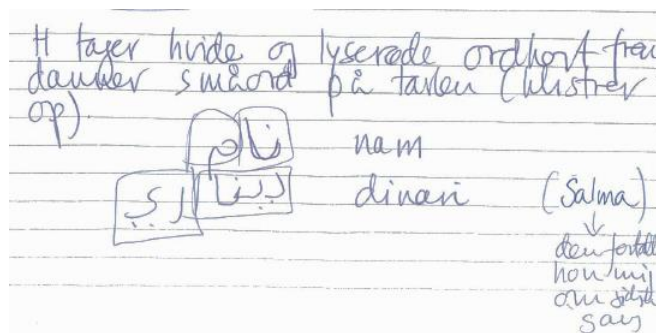 H tager hvide og lyserøde ordkort frem
danner småord på tavlen (klistrer
op).
نام nam
دينا ري dinari (Salma)
↓
den fortalte
hon mig
om sidste
gang